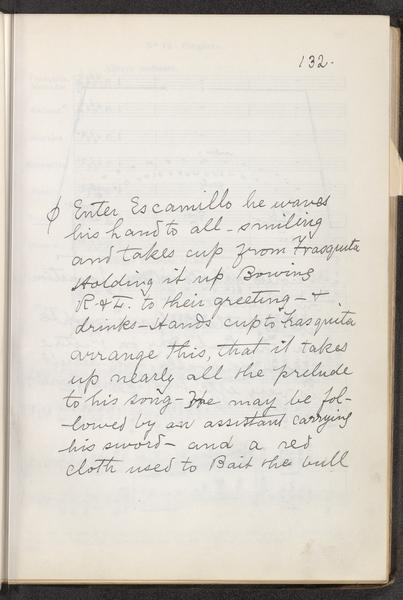 132.
ϕ Enter Escamillo he waves
his hand to all - smiling
and takes cup from Frasquita
Holding it up Bowing
R. & L. to their greeting - &
drinks - Hands cup to Frasquita
arrange this, that it takes
up nearly all the prelude
to his song - He may be fol-
-lowed by an assistant carrying
his sword - and a red
cloth used to Bait the bull